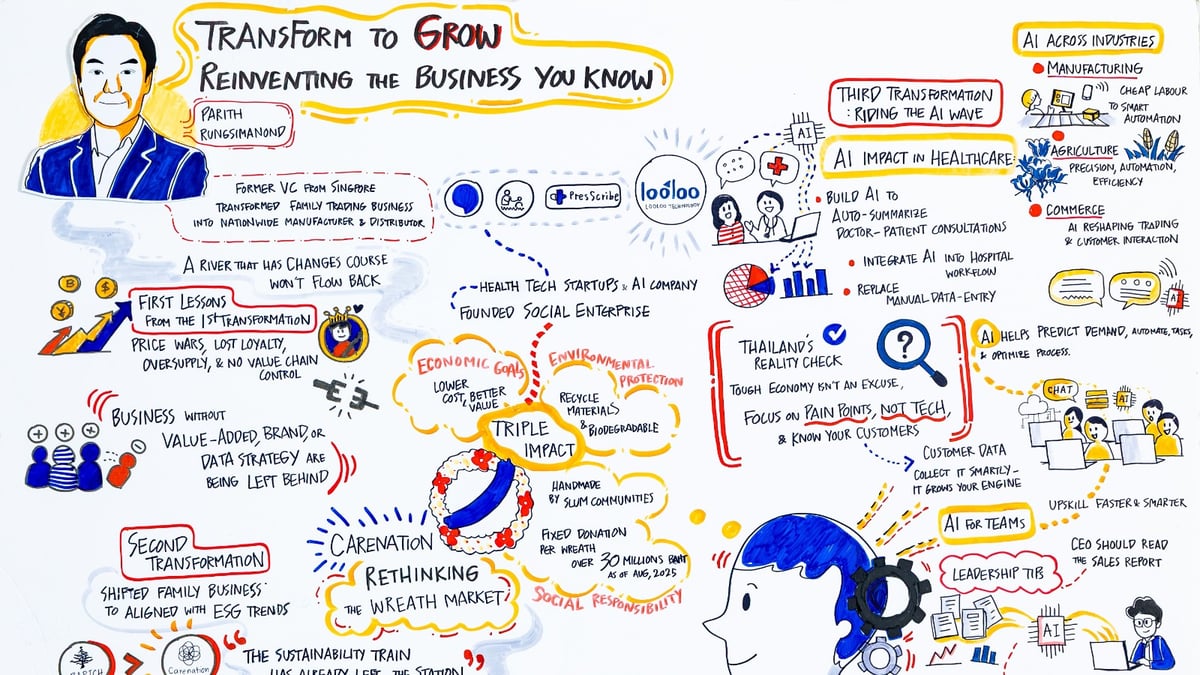 TRANSFORM TO GROW
REINVENTING THE BUSINESS YOU KNOW
PARITH
RUNGSIMANOND
FORMER VC FROM SINGPORE
TRANSFORMED FAMILY TRADING BUSINESS
INTO NATIONWIDE MANUFACTURER & DISTRIBUTOR
A RIVER THAT HAS CHANGES COURSE
WON'T FLOW BACK
FIRST LESSONS
FROM THE 1ST TRANSFORMATION
PRICE WARS, LOST LOYALTY,
OVERSUPPLY, & NO VALUE CHAIN
CONTROL
BUSINESS WITHOUT
VALUE-ADDED, BRAND, OR
DATA STRATEGY ARE
BEING LEFT BEHIND
SECOND
TRANSFORMATION
SHIFTED FAMILY BUSINESS
TO ALIGNED WITH ESG TRENDS
Carenation
"THE SUSTAINABILITY TRAIN
HAS ALREADY LEFT THE STATION"
PresScribe
looloo
LOOLOO TECHNOLOGY
HEALTH TECH STARTUPS & AI COMPANY
FOUNDED SOCIAL ENTERPRISE
ECONOMIC GOALS
LOWER
COST, BETTER
VALUE
ENVIRONMENTAL
PROTECTION
RECYCLE
MATERIALS
& BIODEGRADABLE
TRIPLE
IMPACT
HANDMADE
BY SLUM COMMUNITIES
FIXED DONATION
PER WREATH
OVER 30 MILLIONS BAHT
AS OF AUG, 2025
SOCIAL RESPONSIBILITY
CARENATION
RETHINKING
THE WREATH MARKET
THIRD TRANSFORMATION
: RIDING THE AI WAVE
AI
AI IMPACT IN HEALTHCARE
BUILD AI TO
AUTO-SUMMARIZE
DOCTOR-PATIENT CONSULTATIONS
INTEGRATE AI INTO HOSPITAL
WORKFLOW
REPLACE
MANUAL DATA-ENTRY
THAILAND'S
REALITY CHECK
?
TOUGH ECONOMY ISN'T AN EXCUSE,
FOCUS ON PAIN POINTS, NOT TECH,
& KNOW YOUR CUSTOMERS
CUSTOMER DATA
COLLECT IT SMARTLY-
IT GROWS YOUR ENGINE
AI ACROSS INDUSTRIES
MANUFACTURING
CHEAP LABOUR
TO SMART
AUTOMATION
AGRICULTURE
PRECISION, AUTOMATION,
EFFICIENCY
COMMERCE
AI RESHAPING TRADING
& CUSTOMER INTERACTION
AI
AI HELPS PREDICT DEMAND, AUTOMATE, TASKS,
& OPTIMIZE PROCESS.
CHAT
AI
UPSKILL FASTER & SMARTER
AI FOR TEAMS
LEADERSHIP TIP
CEO SHOULD READ
THE SALES REPORT
AI